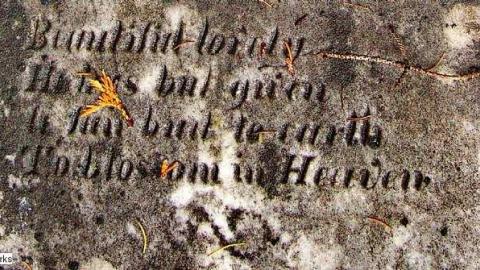 Beautiful lovely
was but giv'en
fair bud to earth
To blossom in Heaven
rks